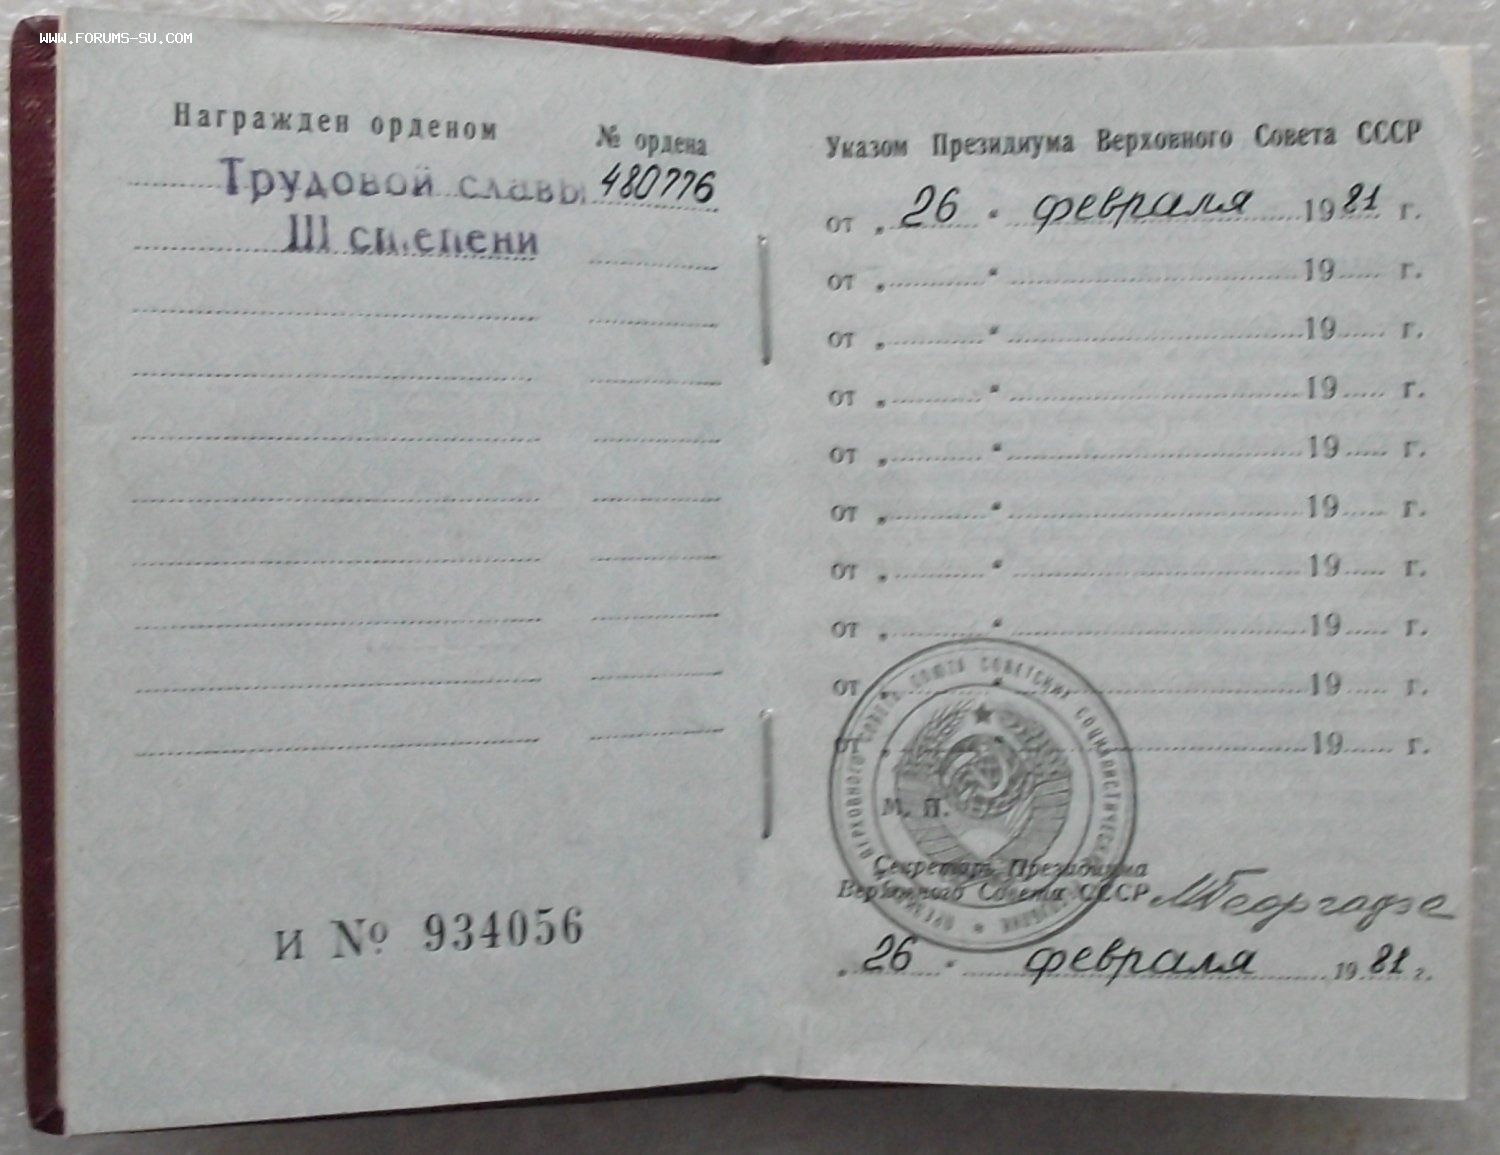 WWW.FORUMS-SU.COM
Награжден орденом
№ ордена
Трудовой славы 480776
III степени
И № 934056
Указом Президиума Верховного Совета СССР
от „ 26 “ февраля 1981 г.
от „ “ 19 г.
от „ “ 19 г.
от „ “ 19 г.
от „ “ 19 г.
от „ “ 19 г.
от „ “ 19 г.
от „ “ 19 г.
от „ “ 19 г.
от „ “ 19 г.
М. П.
Секретарь Президиума
Верховного Совета СССР МГеоргадзе
„ 26 “ февраля 1981 г.
ВЕРХОВНОГО СОВЕТА СОЮЗА СОВЕТСКИХ СОЦИАЛИСТИЧЕСКИХ